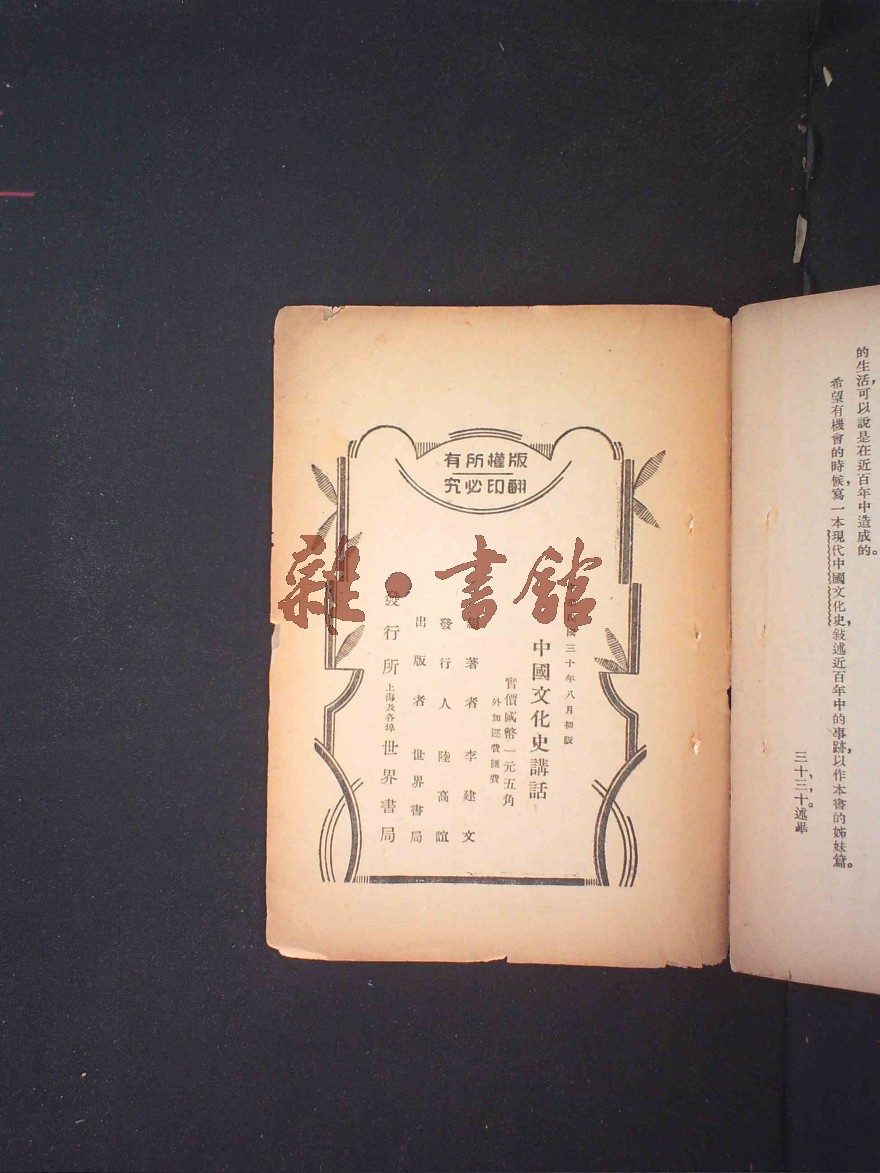 的生活,可以說是在近百年中造成的。
希望有機會的時候,寫一本現代中國文化史,敍述近百年中的事跡,以作本書的姊妹篇。
三十,三,十。述畢
版權所有
翻印必究
民國三十年八月初版
中國文化史講話
實價國幣一元五角
外加運費匯費
著者 李建文
發行人 陸高誼
出版者 世界書局
發行所 上海及各埠 世界書局
雜·書館